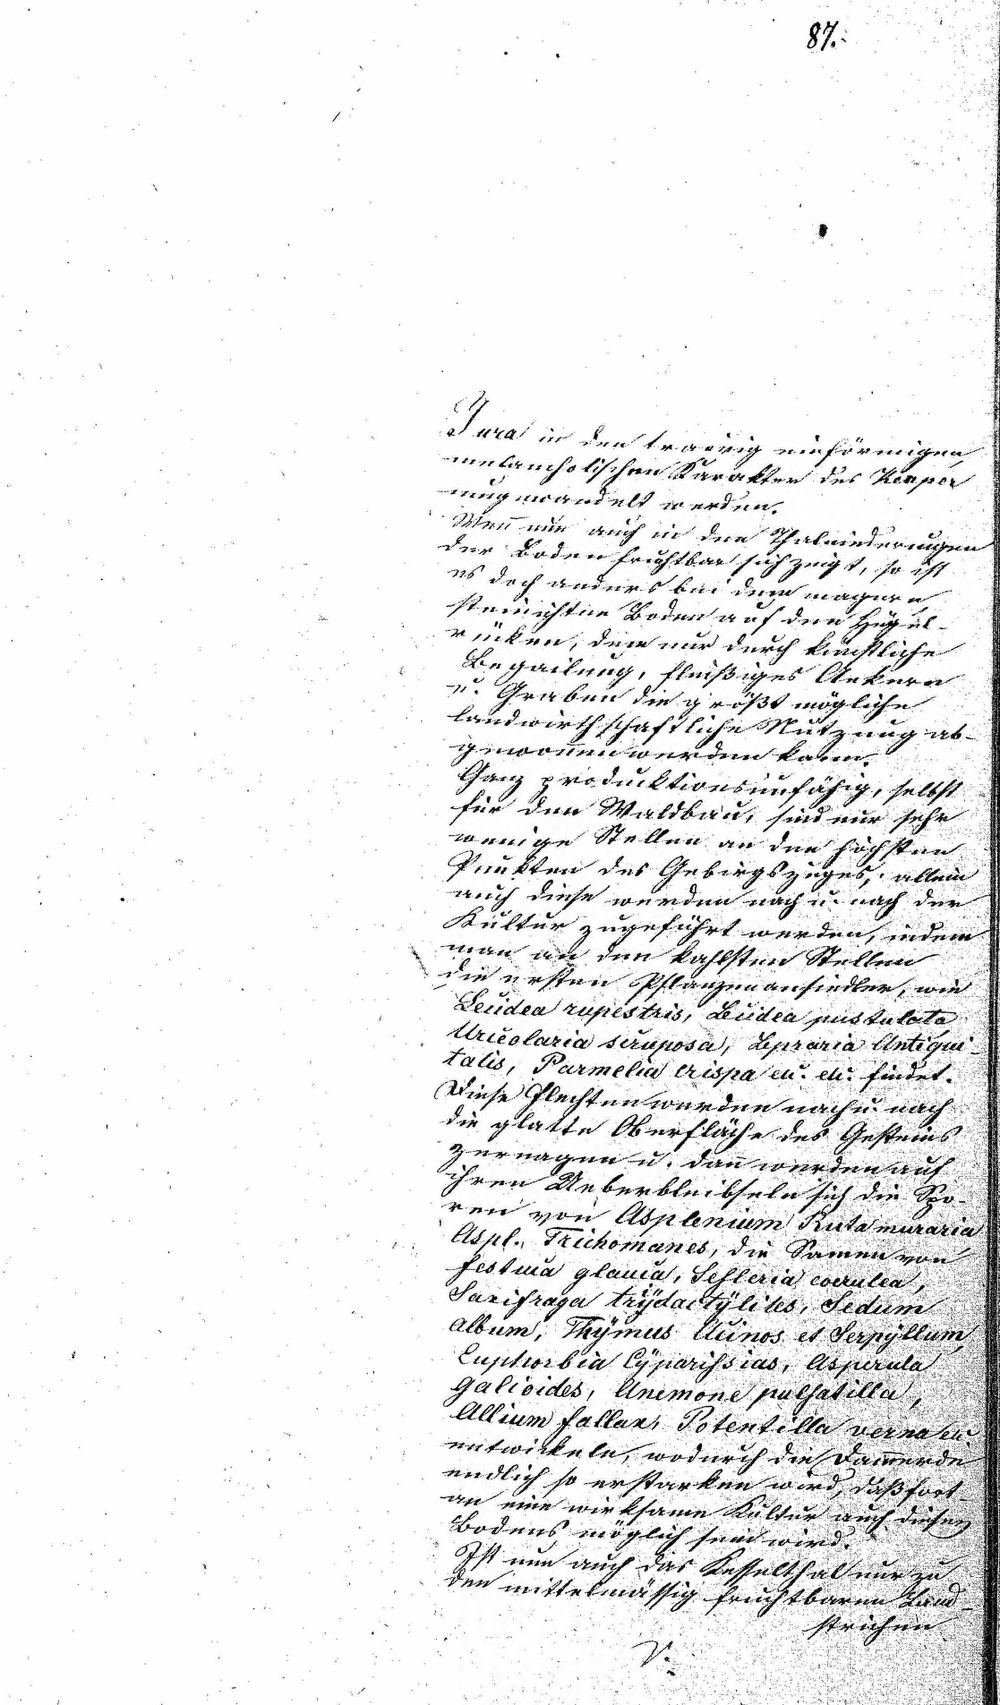 87.
Jura in den traurig einförmigen,
melancholischen Karakter des Keuper
umgewandelt werden.
Wen̄ nun auch in den Thalniederungen
der Boden fruchtbar sich zeigt, so ist
es doch anders bei dem magern
steinichten Boden auf den Hügel-
rücken, dem nur durch künstliche
Begailung, fleißiges Ackern
u. Graben die größt mögliche
landwirthschaftliche Nutzung ab-
gewon̄en werden kann.
Ganz producktionsunfähig, selbst
für den Waldbau, sind nur sehr
wenige Stellen an den höchsten
Punkten des Gebirgszuges, allein
auch diese werden nach u. nach der
Kultur zugeführt werden, indem
man an den kahlsten Stellen
die ersten Pflanzenansiedler, wie
Lecidea rupestris, Lecidea pustulata
Urceolaria scruposa, Lepraria Antiqui-
talis, Parmelia crispa etc. etc. findet.
Diese Flechten werden nach u. nach
die glatte Oberfläche des Gesteins
zernagen u. dan̄ werden auf
ihren Ueberbleibseln sich die Spo-
ren von Asplenium Ruta muraria
Aspl. Trichomanes, die Samen von
Festuca glauca, Sesleria coerulea,
Saxifraga trÿdactÿlites, Sedum
album, Thÿmus Acinos et Serpÿllum,
Euphorbia Cÿparissias, Asperula
galioides, Anemone pulsatilla,
Allium fallax, Potentilla verna etc
entwickeln, wodurch die Dam̄erde
endlich so erstarken wird, daß fort-
an eine wirksame Kultur auch diesen
Bodens möglich sein wird.
Ist nun auch das Kesselthal nur zu
den mittelmässig fruchtbaren Land-
strichen